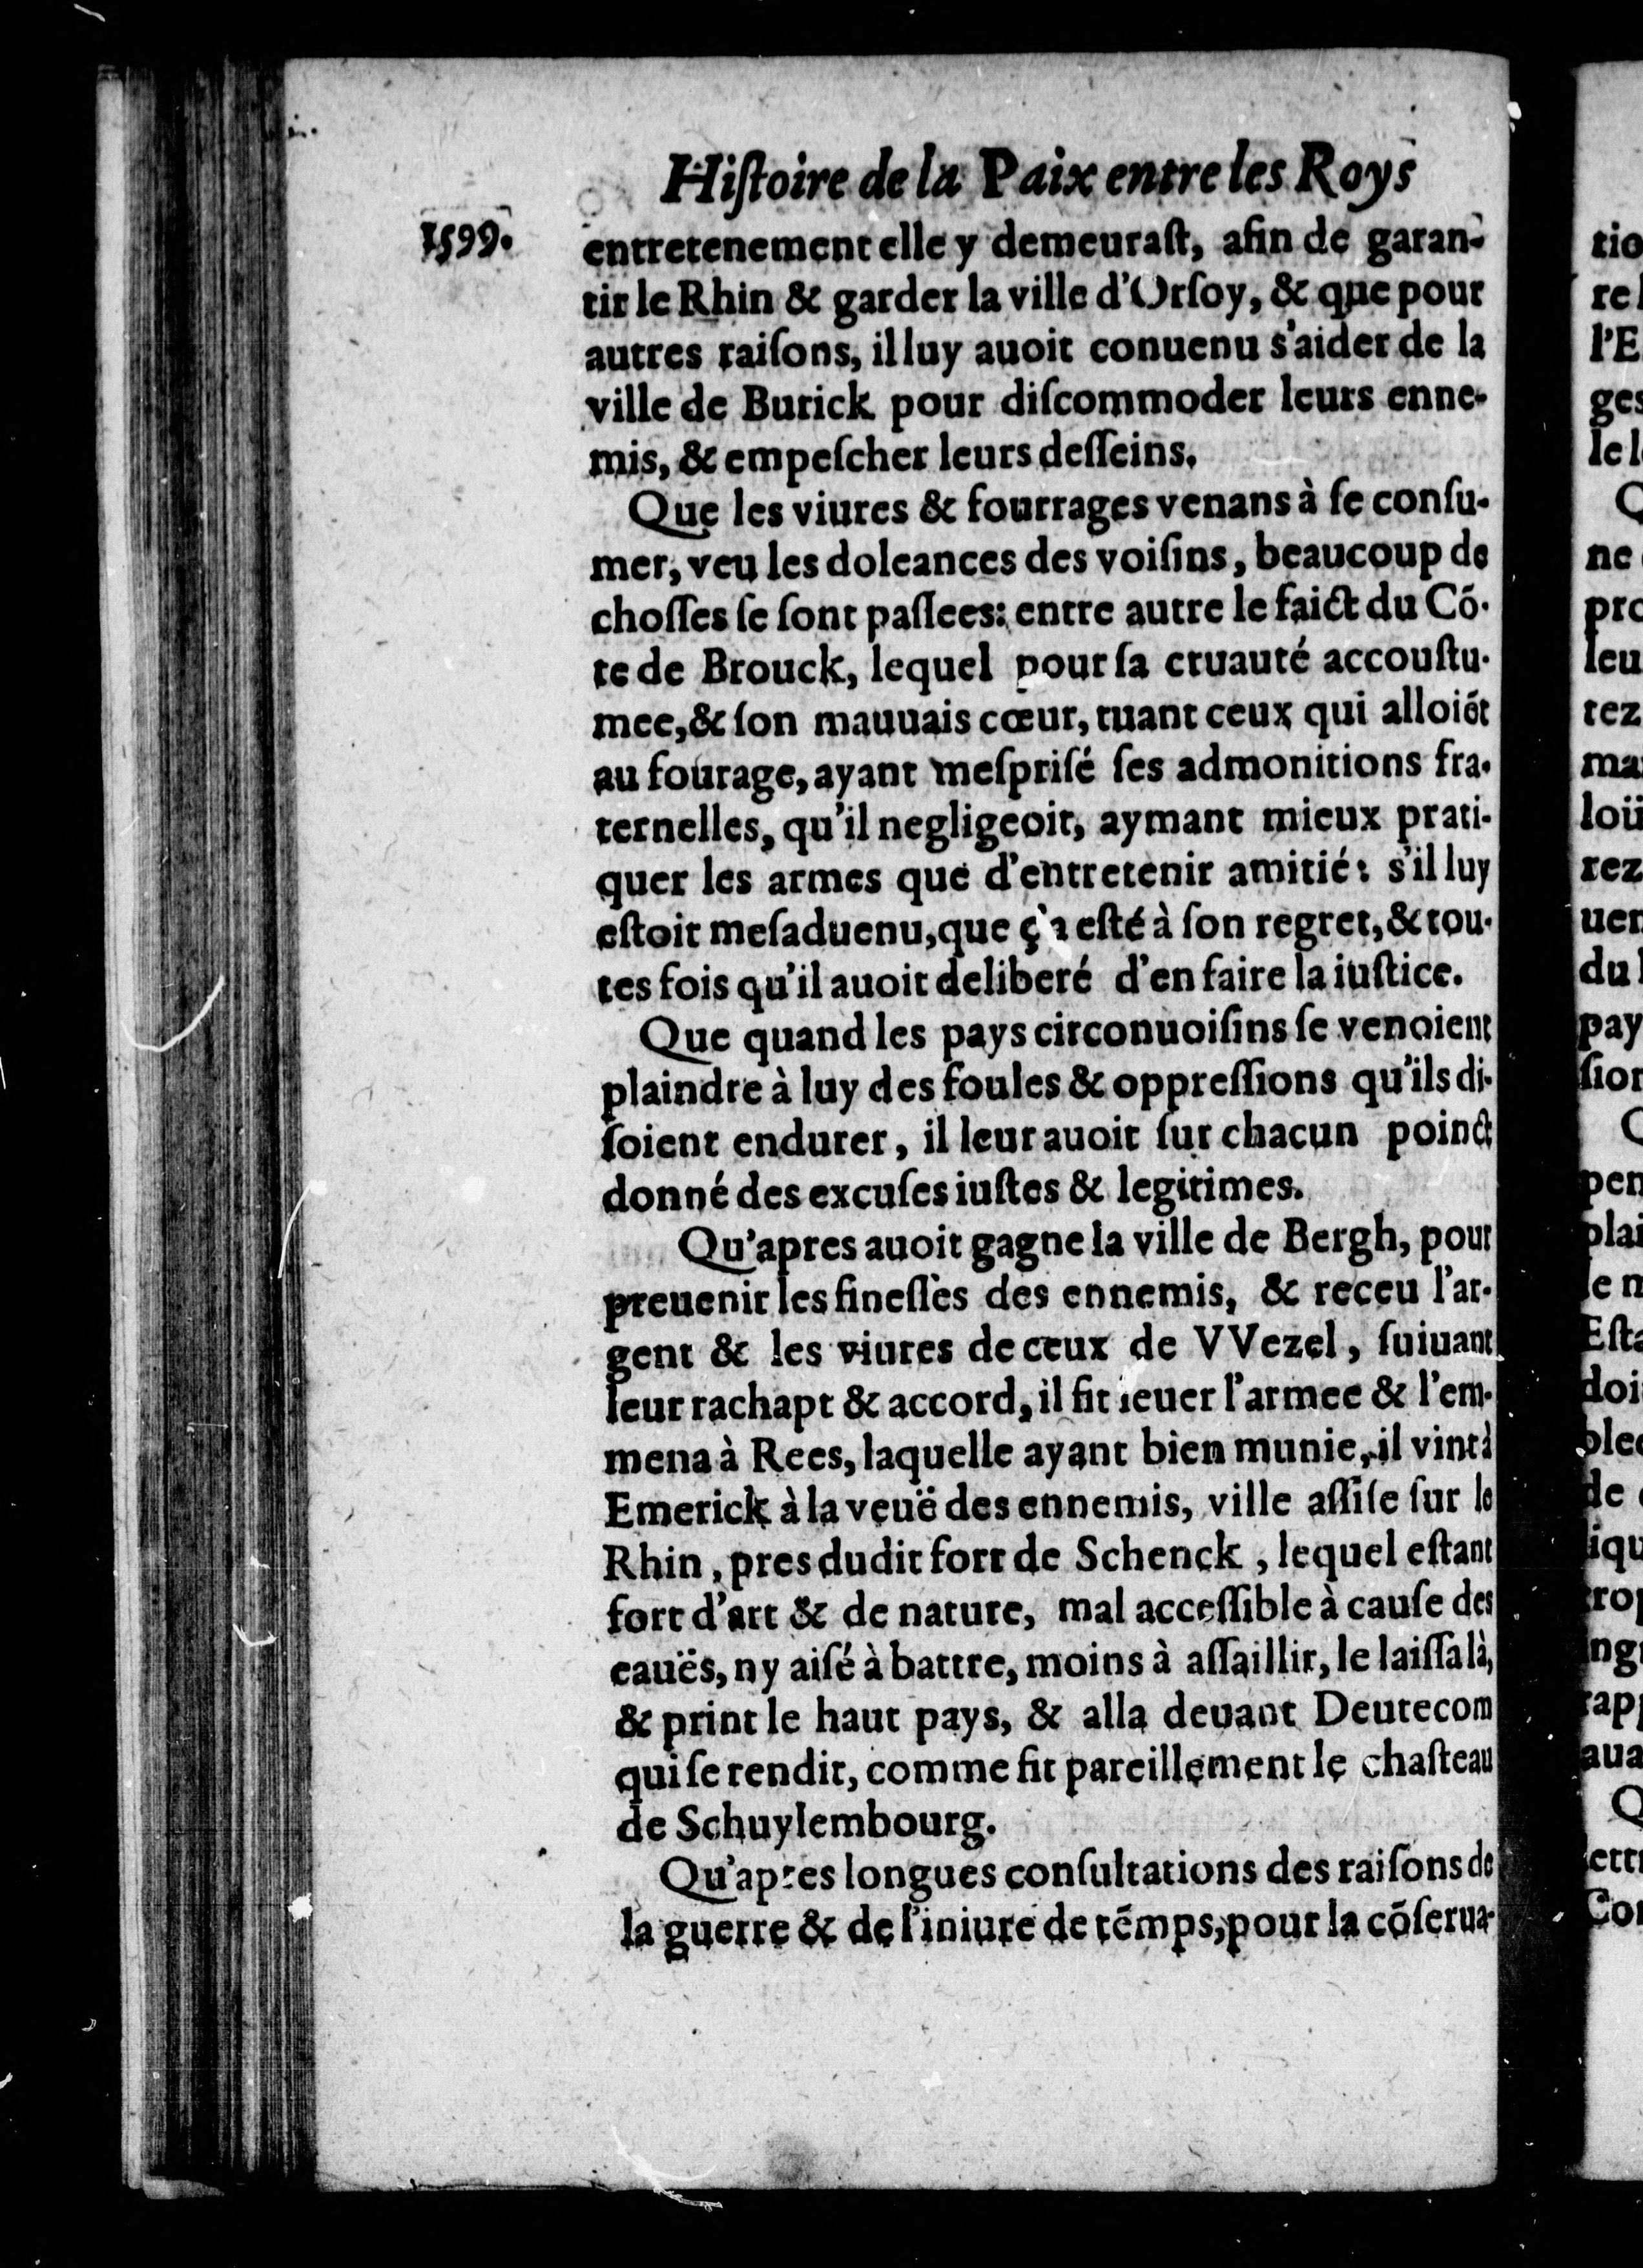 Hiſtoire de la Paix entre les Roys
1599.
entretenement elle y demeuraſt, afin de garan-
tir le Rhin & garder la ville d'Orſoy, & que pour
autres raiſons, il luy auoit conuenu s'aider de la
ville de Burick pour diſcommoder leurs enne-
mis, & empeſcher leurs deſſeins.
Que les viures & fourrages venans à ſe conſu-
mer, veu les doleances des voiſins, beaucoup de
choſſes ſe ſont paſſees: entre autre le faict du Cõ-
te de Brouck, lequel pour ſa cruauté accouſtu-
mee, & ſon mauuais cœur, tuant ceux qui alloiẽt
au fourage, ayant meſpriſé ſes admonitions fra-
ternelles, qu'il negligeoit, aymant mieux prati-
quer les armes que d'entretenir amitié: s'il luy
eſtoit meſaduenu, que ç'a eſté à ſon regret, & tou-
tes fois qu'il auoit deliberé d'en faire la iuſtice.
Que quand les pays circonuoiſins ſe venoient
plaindre à luy des foules & oppreſſions qu'ils di-
ſoient endurer, il leur auoit ſur chacun poinct
donné des excuſes iuſtes & legitimes.
Qu'apres auoit gagne la ville de Bergh, pour
preuenir les fineſſes des ennemis, & receu l'ar-
gent & les viures de ceux de VVezel, ſuiuant
leur rachapt & accord, il fit leuer l'armee & l'em-
mena à Rees, laquelle ayant bien munie, il vint à
Emerick à la veuë des ennemis, ville aſſiſe ſur le
Rhin, pres dudit fort de Schenck, lequel eſtant
fort d'art & de nature, mal acceſſible à cauſe des
eauës, ny aiſé à battre, moins à aſſaillir, le laiſſa là,
& print le haut pays, & alla deuant Deutecom
qui ſe rendit, comme fit pareillement le chaſteau
de Schuylembourg.
Qu'apres longues conſultations des raiſons de
la guerre & de l'iniure de tẽmps, pour la cõſerua-